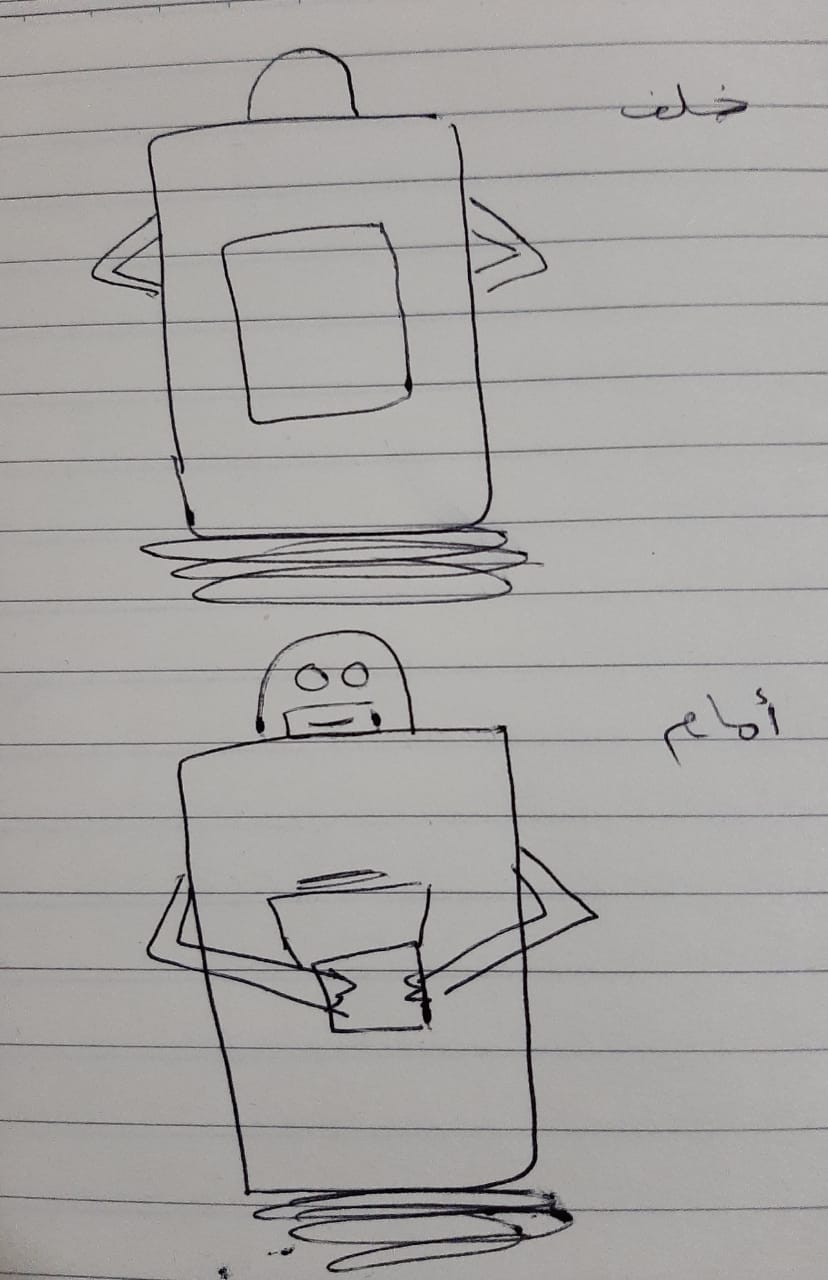 خلف
أمام